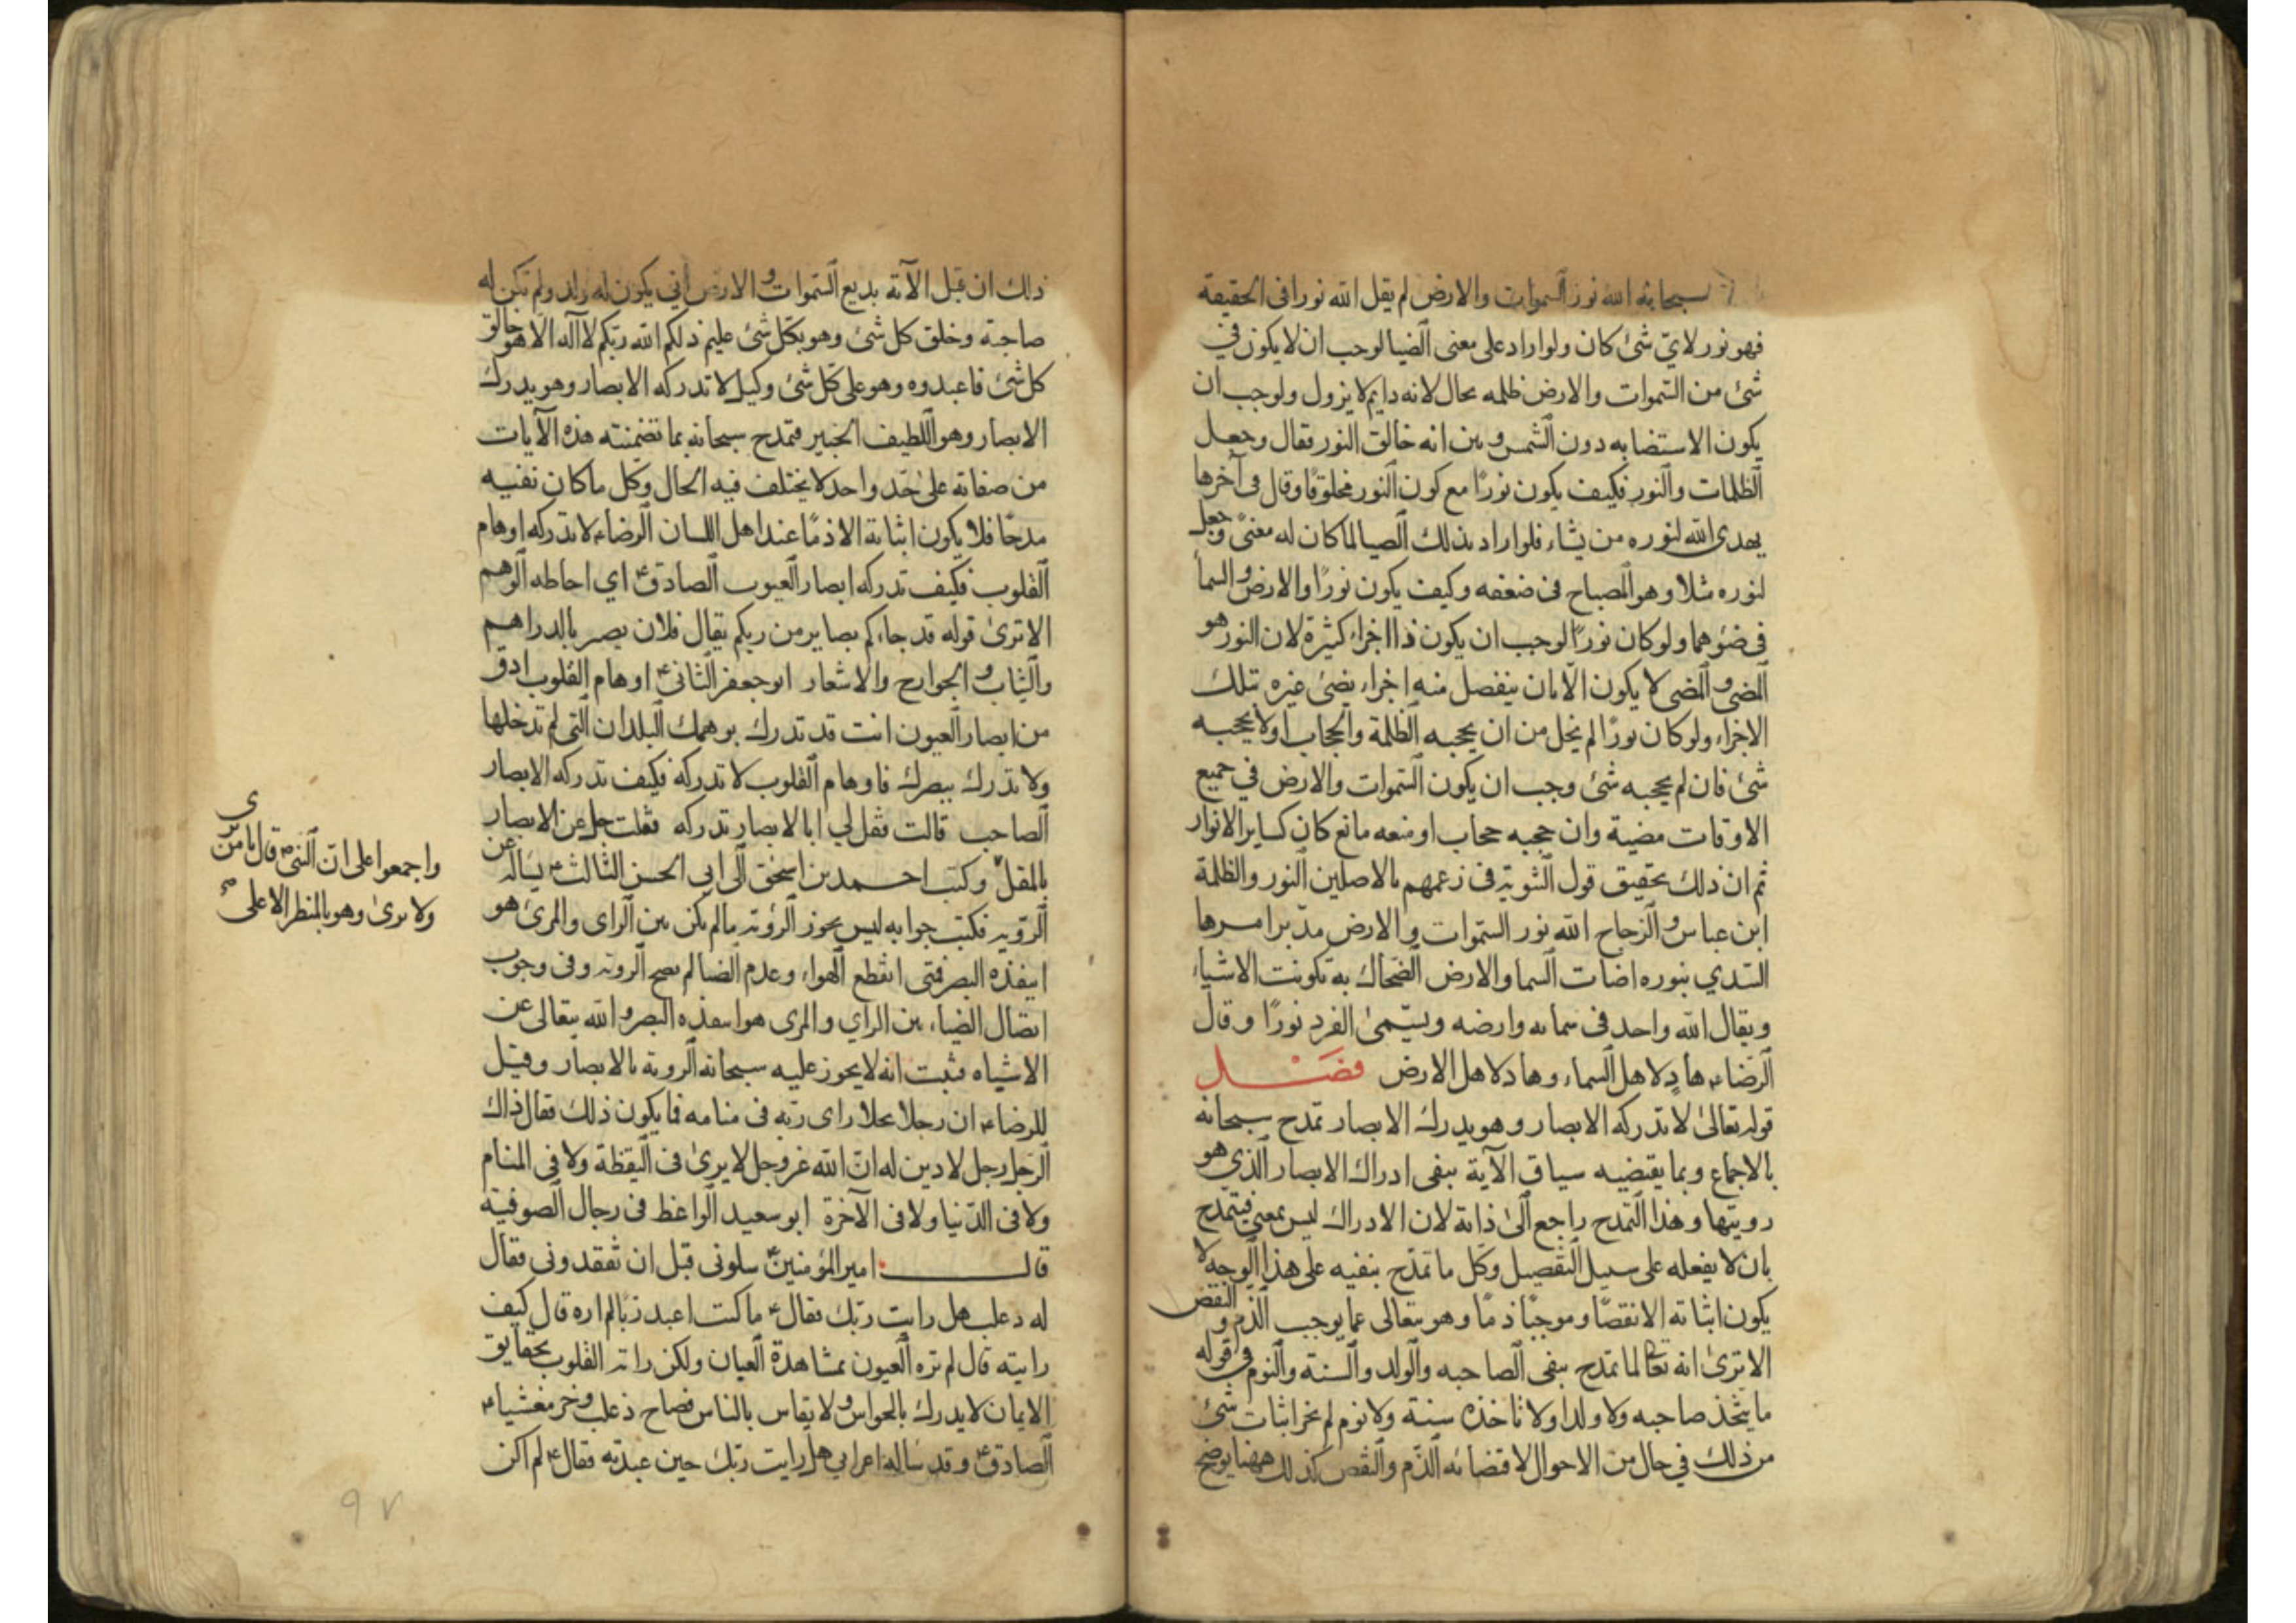 سبحانه الله نور السموات والارض لم يقل الله نورا فى الحقيقة
فهو نور لاىّ شئ كان ولو اراد على معنى الضيا لوجب ان لا يكون في
شئ من السموات والارض ظلمه بحال لانه دايم لا يزول ولوجب ان
يكون الاستضابه دون الشمس و بين انه خالق النور فقال وجعل
الظلمات والنور فكيف يكون نورًا مع كون النور مخلوقًا وقال فى آخرها
يهدى الله لنوره من يشاء فلو اراد بذلك الضيا لما كان له معنىً وجعل
لنوره مثلا وهو المصباح فى ضعفه وكيف يكون نورًا والارض و السمأ
فى ضوهما ولو كان نورًا لوجب ان يكون ذا اجزاء كثيرة لان النور هو
المضى و المضى لا يكون الّا بان ينفصل منه اجزاء يضئ غيره بتلك
الاجزاء ولو كان نورًا لم يخل من ان يحجبه الظلمة والحجاب او لا يحجبه
شئ فان لم يحجبه شئ وجب ان يكون السموات والارض في جميع
الاوقات مضية وان حجبه حجاب او منعه مانع كان كساير الانوار
ثم ان ذلك تحقيق قول الثنوية فى زعمهم بالاصلين النور والظلمة
ابن عباس و الزجاج الله نور السموات والارض مدّبر امرها
السّدي بنوره اضات السما والارض الضحاك به تكونت الاشياء
ويقال الله واحد فى سمائه وارضه ويسمّىٰ الفرد نورًا وقال
الرضا ع هادٍ لاهل السماء وهاد لاهل الارض فصل
قوله تعالىٰ لا تدركه الابصار وهو يدرك الابصار تمدح سبحانه
بالاجماع وبما يقتضيه سياق الآية بنفى ادراك الابصار الذي هو
رويتها وهذا التمدح راجع الىٰ ذاته لان الادراك ليس بمعنى فيتمدح
بان لا يفعله على سبيل التفصيل وكل ما تمدّح بنفيه على هذا الوجه لا
يكون اثباته الا نقصًا وموجبًا ذمًا وهو يتعالى عما يوجب الذم و النقص
الا ترىٰ انه تعالى لما تمدح بنفى الصاحبه والولد والسنة والنوم فى قوله
ما يتخذ صاحبه ولا ولدا ولا تاخذه سنة ولا نوم لم يجز اثبات شئ
من ذلك في حال من الاحوال لاقتضائه الذّم والنقص كذلك ههنا يوضح
ذلك ان قبل الآية بديع السموات و الارض انى يكون له ولد ولم تكن له
صاحبة وخلق كل شئ وهو بكل شئ عليم ذلكم الله ربّكم لا آله الّا هو خالق
كل شئ فاعبدوه وهو على كل شئ وكيل لا تدركه الابصار وهو يدرك
الابصار وهو اللطيف الخبير فتمدح سبحانه بما تضمنته هذه الآيات
من صفاته على حدّ واحد لا يختلف فيه الحال وكل ما كان نفيه
مدحًا فلا يكون اثباته الا ذمًا عند اهل اللسان الرضا ع لا تدركه اوهام
القلوب فكيف تدركه ابصار العيوب الصادق ع اي احاطه الوهم
الا ترىٰ قوله قد جاءكم بصاير من ربكم يقال فلان بصير بالدراهم
والثياب و الجوارح والاشعار ابو جعفر الثانى ع اوهام القلوب ادق
من ابصار العيون انت قد تدرك بوهمك البلدان التى لم تدخلها
ولا تدرك ببصرك فاوهام القلوب لا تدركه فكيف تدركه الابصار
الصاحب قالت فقل لي ابالابصار تدركه فقلت جل عن الابصار
بالمقل وكتب احمد بن اسحق الى ابى الحسن الثالث ع يساله عن
الرّوية فكتب جوابه ليس يجوز الرؤية ما لم يكن بين الراى والمرئ هو
اينفذه البصر فتى انقطع الهواء وعدم الضيا لم يصح الروية وفى وجوب
اتصال الضياء بين الراي والمرى هوا ينفذه البصر و الله يتعالى عن
الاشياه فثبت انه لا يجوز عليه سبحانه الروية بالابصار وقيل
للرضا ع ان رجلا رجلا راى ربّه فى منامه فما يكون ذلك فقال ذاك
الرّجل رجل لا دين له انّ الله عز وجل لا يرىٰ فى اليقظة ولا فى المنام
ولا فى الدّنيا ولا فى الآخرة ابو سعيد الواعظ فى رجال الصوفية
قال امير المؤمنين ع سلونى قبل ان تفقدونى فقال
له دعلب هل رايت ربّك فقال ع ما كنت اعبد ربًّا لم اره قال كيف
رايته قال لم تره العيون بمشاهدة العيان ولكن راته القلوب بحقايق
الايمان لا يدرك بالحواس و لا يقاس بالناس فصاح ذعلب وخر مغشيا
الصادق ع وقد ساله اعرابي هل رايت ربّك حين عبدته فقال ع لم اكن
واجمعوا على انّ النبى ص قال يا من يرى
ولا يرىٰ وهو بالمنظر الاعلى
٩٧